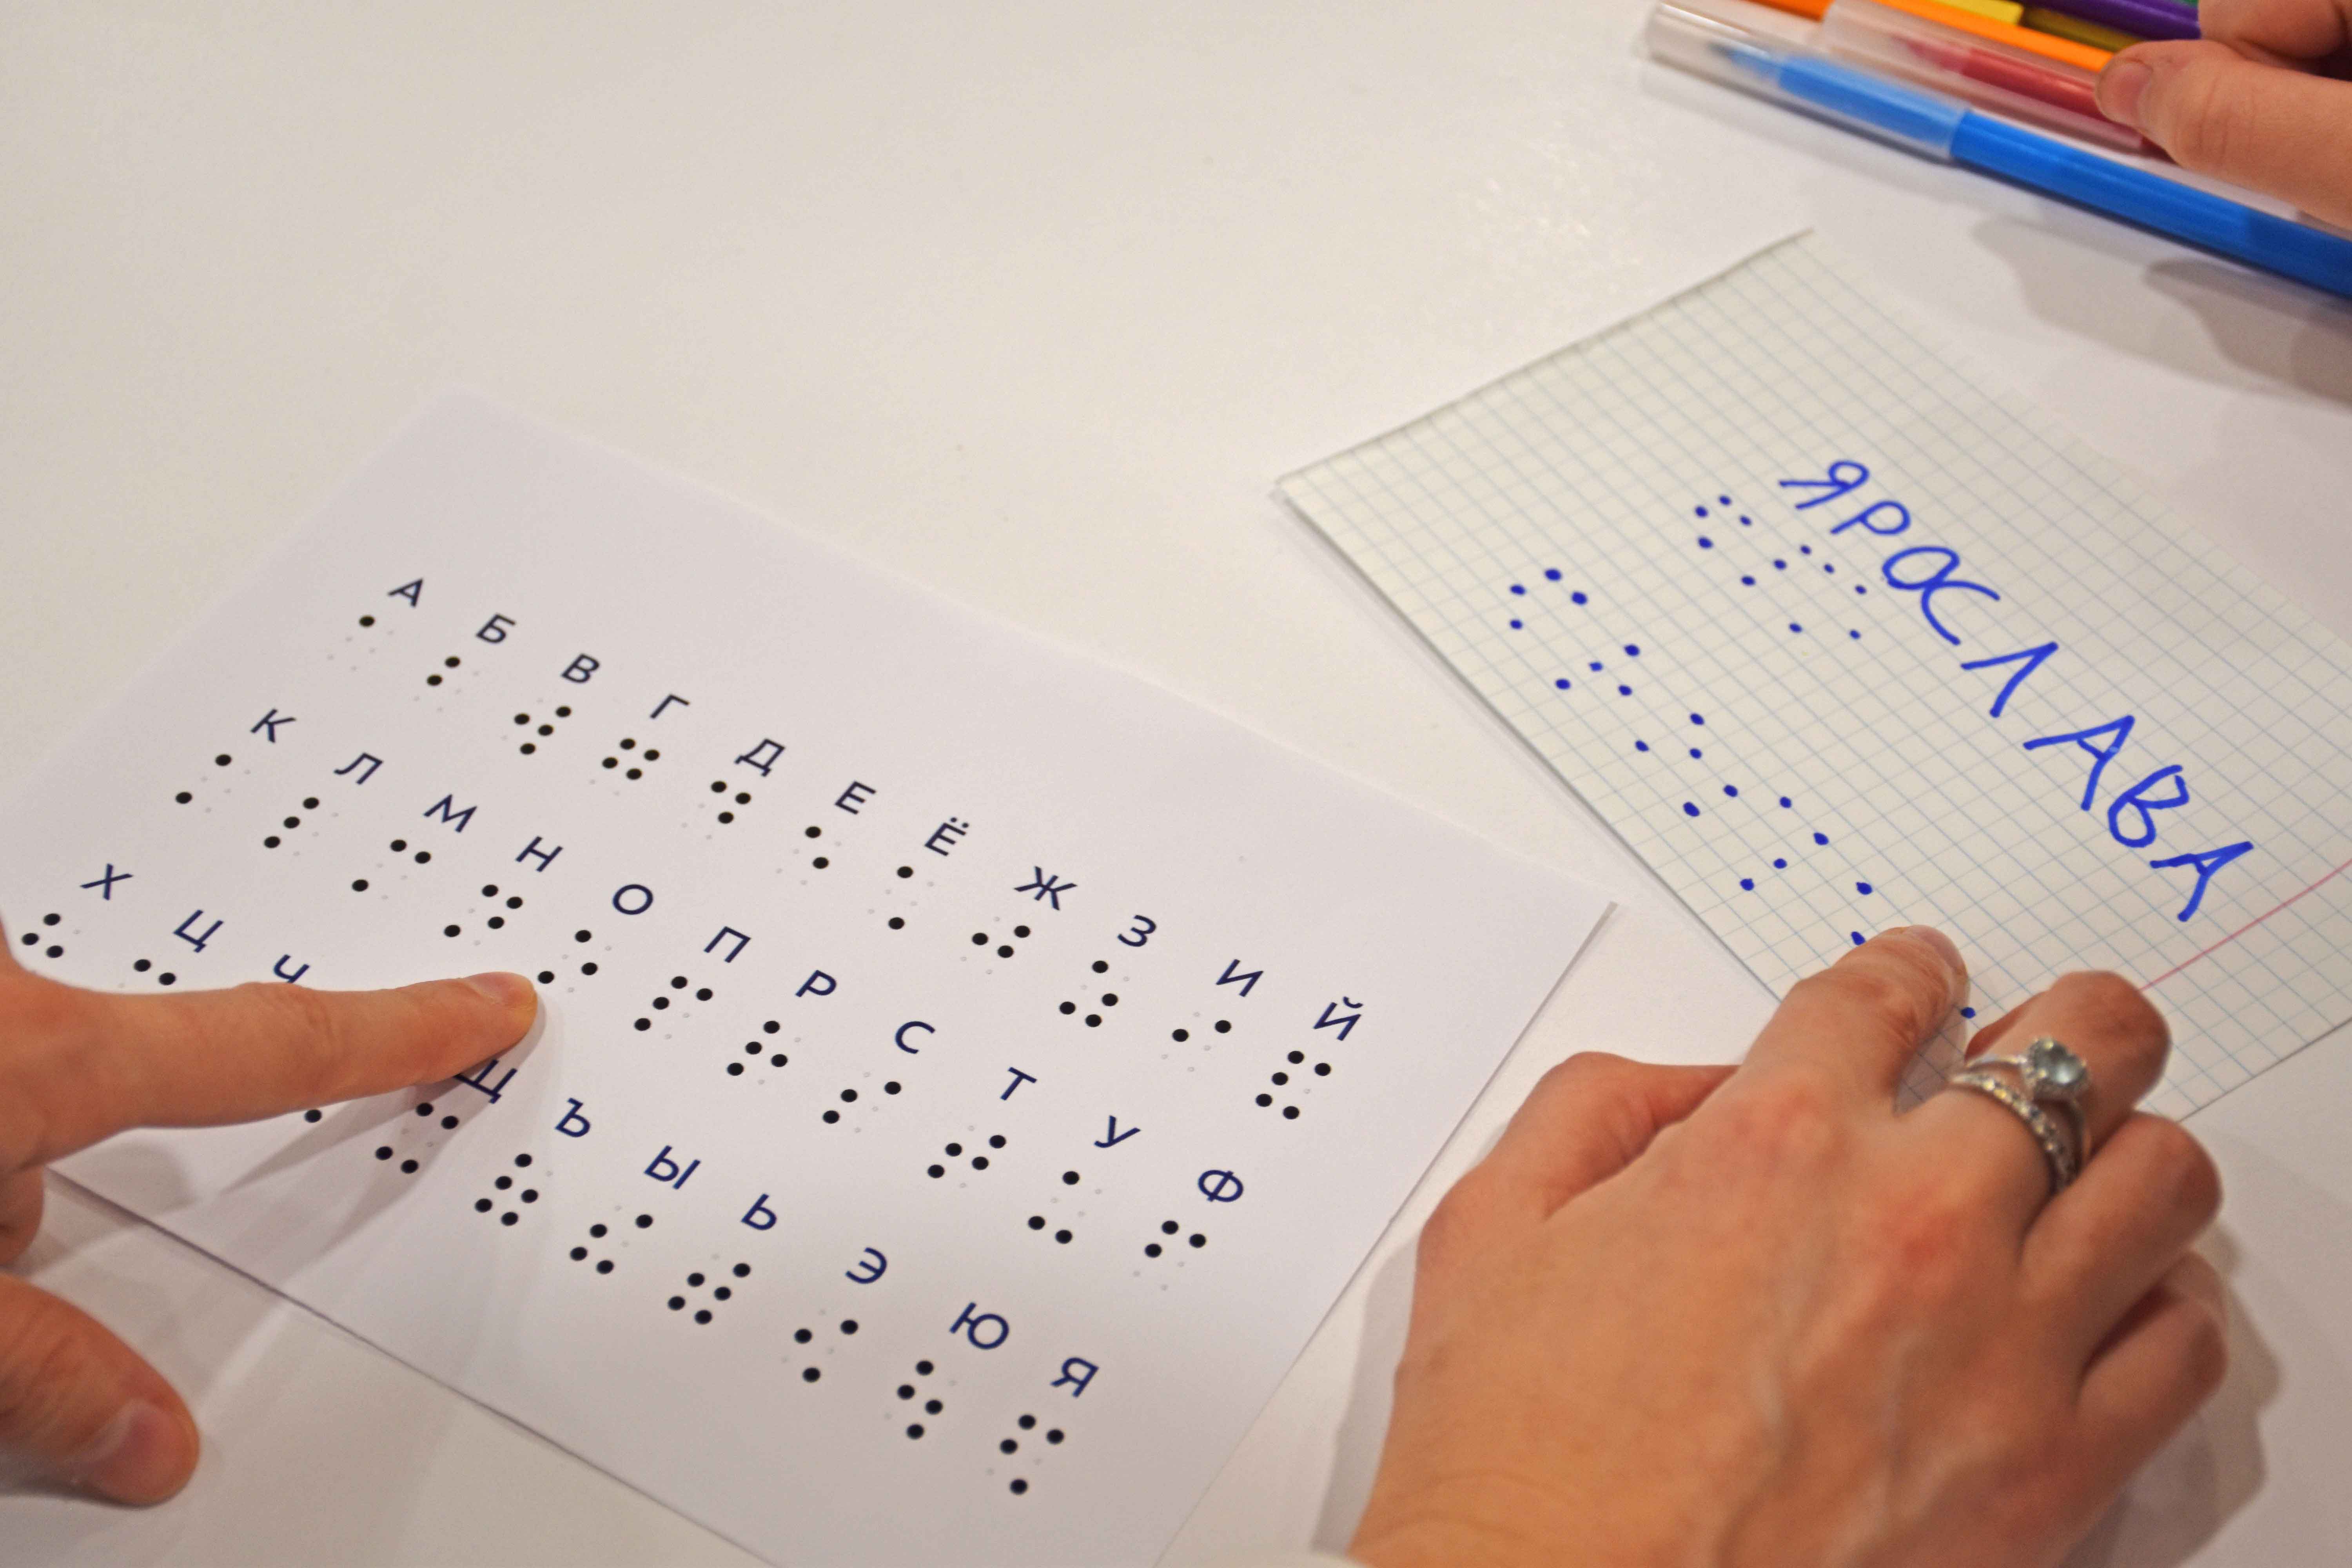 А Б В Г Д Е Ё Ж З И Й
К Л М Н О П Р С Т У Ф
Х Ц Ч Щ Ъ Ы Ь Э Ю Я
ЯРОСЛАВА